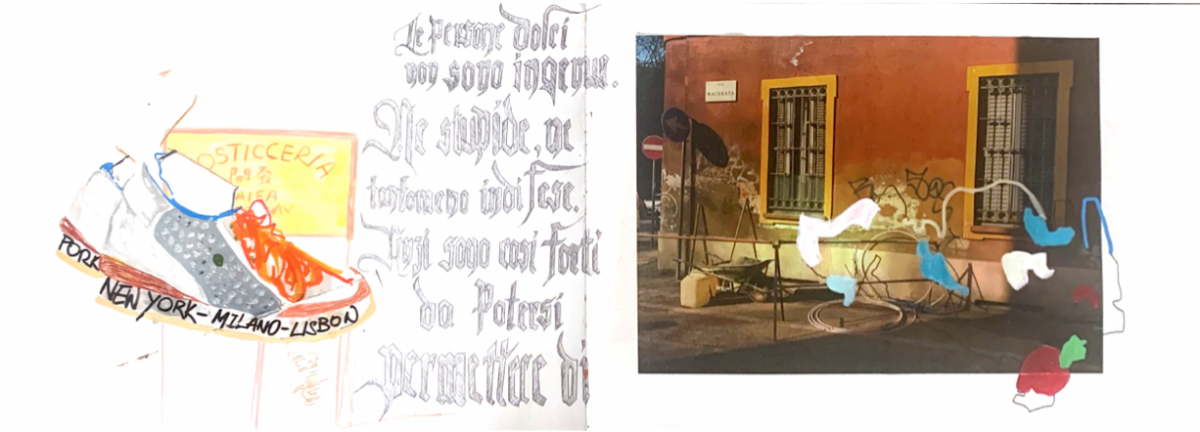 OSTICCERIA
PORK
NEW YORK-MILANO-LISBON
Le Persone dolci
non sono ingenue.
Ne stupide, ne
tantomeno indifese.
Anzi sono cosi forti
da Potersi
permettere di